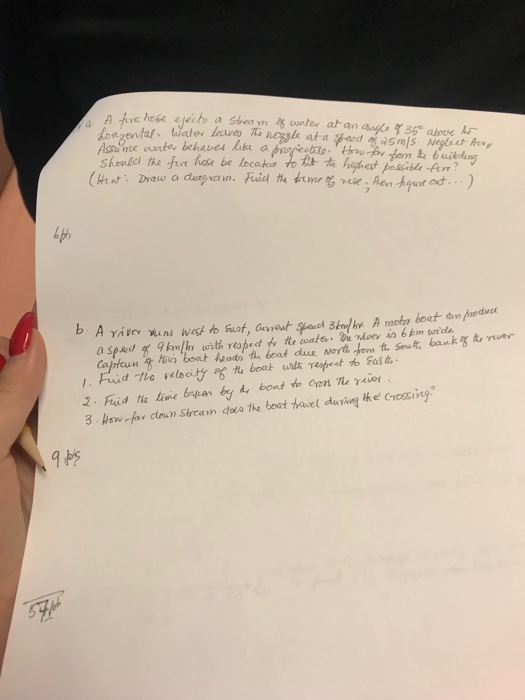 a. A fire hose ejects a stream of water at an angle of 35° above the
horizontal. Water leaves the nozzle at a speed of 25m/s. Neglect
Assume water behaves like a projectile. How far from the building
should the fire hose be located to hit the highest possible fire?
(Hint: Draw a diagram. Find the time of rise, then figure out...)
6pts
b. A river runs West to East, Current Speed 3km/hr. A motor boat can produce
a speed of 9km/hr with respect to the water. The river is 6km wide
Captain of this boat heads the boat due North from the South bank of the river
1. Find the velocity of the boat with respect to Earth.
2. Find the time taken by the boat to cross the river.
3. How far down stream does the boat travel during the crossing?
9pts
57pts